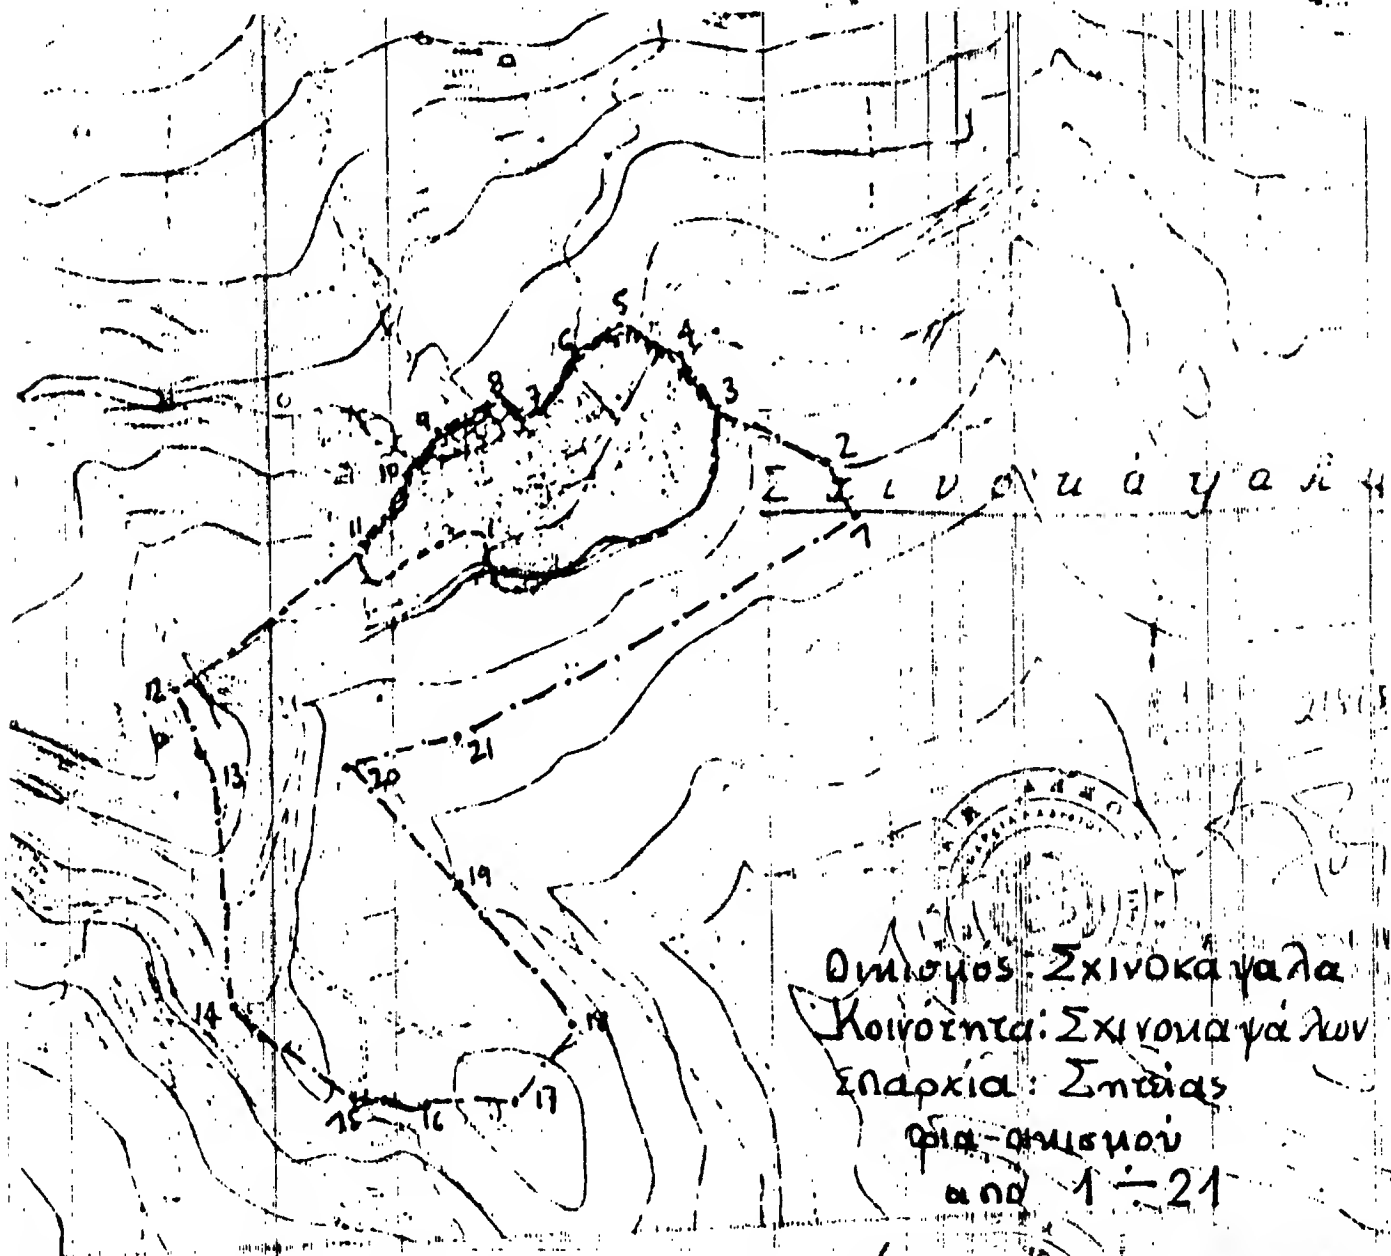 5
4
6
3
8
7
9
2
10
Σχινοκάψαλα
11
1
12
21
20
13
19
14
18
17
15
16
Οικισμός: Σχινοκάψαλα
Κοινότητα: Σχινοκαψάλων
Επαρχία: Σητείας
όρια οικισμού
από 1 ÷ 21